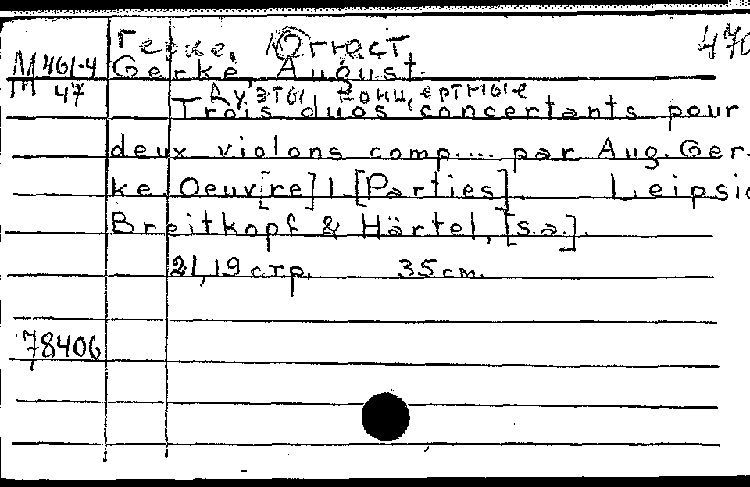 Герке, Югаст 470
М 461-4 Gerke, August.
М 47 Дуэты концертные
Trois duos concertants pour
deux violons comp.... par Aug. Ger-
ke. Oeuv[re] 1 [Parties] Leipsic
Breitkopf & Härtel, [s.a.].
21,19 стр. 35 см.
78406